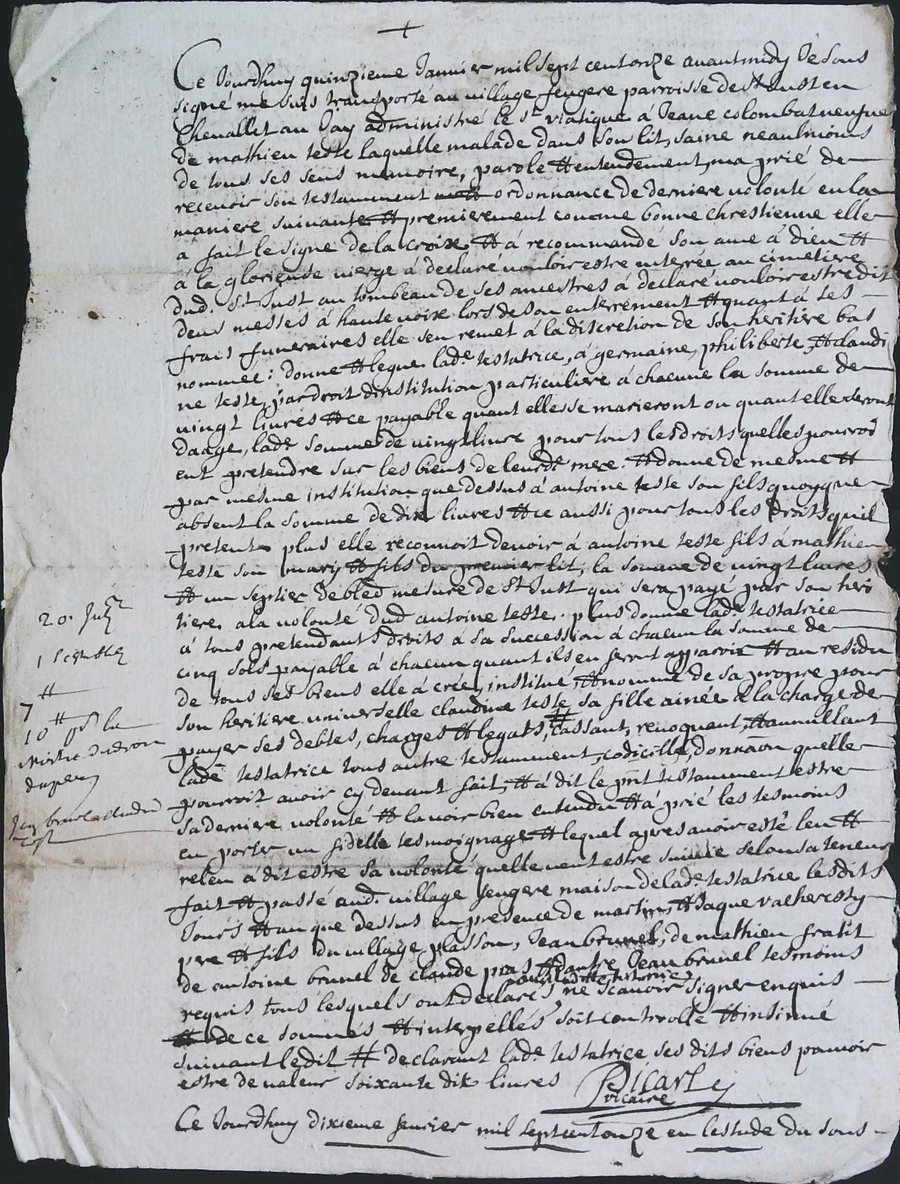 +
Ce Jourdhuy quinzieme Janvier mil sept cent onze avant midy Je sous
signé me suis transporté au village feugere parroisse de St Just en
Chevallet au Jay administré le St viatique à Jeane colombat
de mathieu teste laquelle malade dans son lit, saine neaulmoins
de tous ses sens memoire, parole et entendement, ma prié de
recevoir son testamment ordonnance de derniere volonté en la
maniere suivante et premierement comme bonne chrestienne elle
a fait le signe de la croix et à recommandé son ame à dieu et
à la glorieuse vierge à declaré vouloir estre enterée au cimetiere
dud. St Just au tombeau de ses ancestres à declaré vouloir estre dit
deus messes à haute voix lors de son enterrement et quant à ses
frais funeraires elle sen remet à la discretion de son heritiere bas
nommée: donne et legue lade testatrice, à germaine, philiberte, et claudi
ne teste, par droit dinstitution particuliere à chacune la somme de
vingt livres et ce payable quant elles se marieront ou quant elle seront
daage, lade somme de vingt livre pour tous les droits quelles pourroi
ent pretendre sur les biens de leurde mere. et donne de mesme et
par mesme institution que dessus à antoine teste son fils quoyque
absent la somme de dix livres et ce aussi pour tous les droits quil
pretent plus elle reconnoit devoir à antoine teste fils à mathieu
teste son mary et fils du premier lit, la somme de vingt livres
et un septier de bled mesure de St Just qui sera payé par son heri
tiere à la volonté dud antoine teste. plus donne lade testatrice
à tous pretendant droits à sa succession à chacun la somme de
cinq sols payable à chacun quant ils en seront apparoir et au residu
de tous ses biens elle à crée, institué, et nommé de sa propre pour
son heritiere universelle claudine teste sa fille ainée à la charge de
payer ses debtes, charges et legats, cassant, revoquant, et annullant
lade testatrice tous autre testamment, codicille, donnaon quelle
pourroit avoir cy devant fait, et à dit le pnt testamment estre
sa derniere volonté et lavoir bien entendu et à prié les tesmoins
en porter un fidelle tesmoignage et lequel apres avoir esté leu et
releu à dit estre sa volonté quelle veut estre suivie selon sa teneur
fait et passé aud. village feugere maison de lade testatrice lesdits
Jours et an que dessus en presence de martin et Jaque vacheresty
pre et fils du village plasson, Jean brunel, de mathieu fratit
de antoine brunel de claude pras et dautre Jean brunel tesmoins
requis tous lesquels ont declarés ne scavoir signer enquis
de ce sommés et interpellés soit controllé et insinué
suivant ledit et declarant lade testatrice ses dits biens pouvoir
estre de valeur soixante dix livres
vicaire
Ce Jourdhuy dixieme fevrier mil sept cent onze en lestude du sous-
20.
7
10